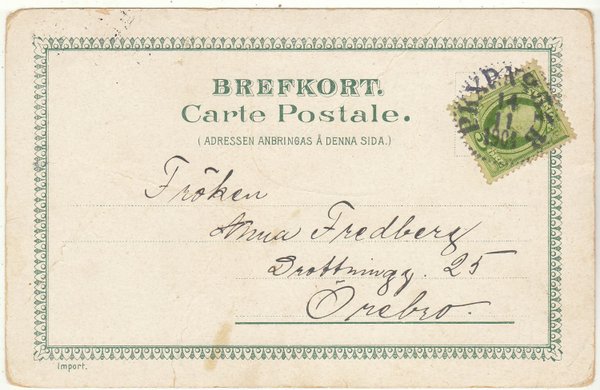 BREFKORT.
Carte Postale.
(ADRESSEN ANBRINGAS Å DENNA SIDA.)
14
11
1901
Fröken
Anna Fredberg
Drottningg. 25
Örebro.
Import.